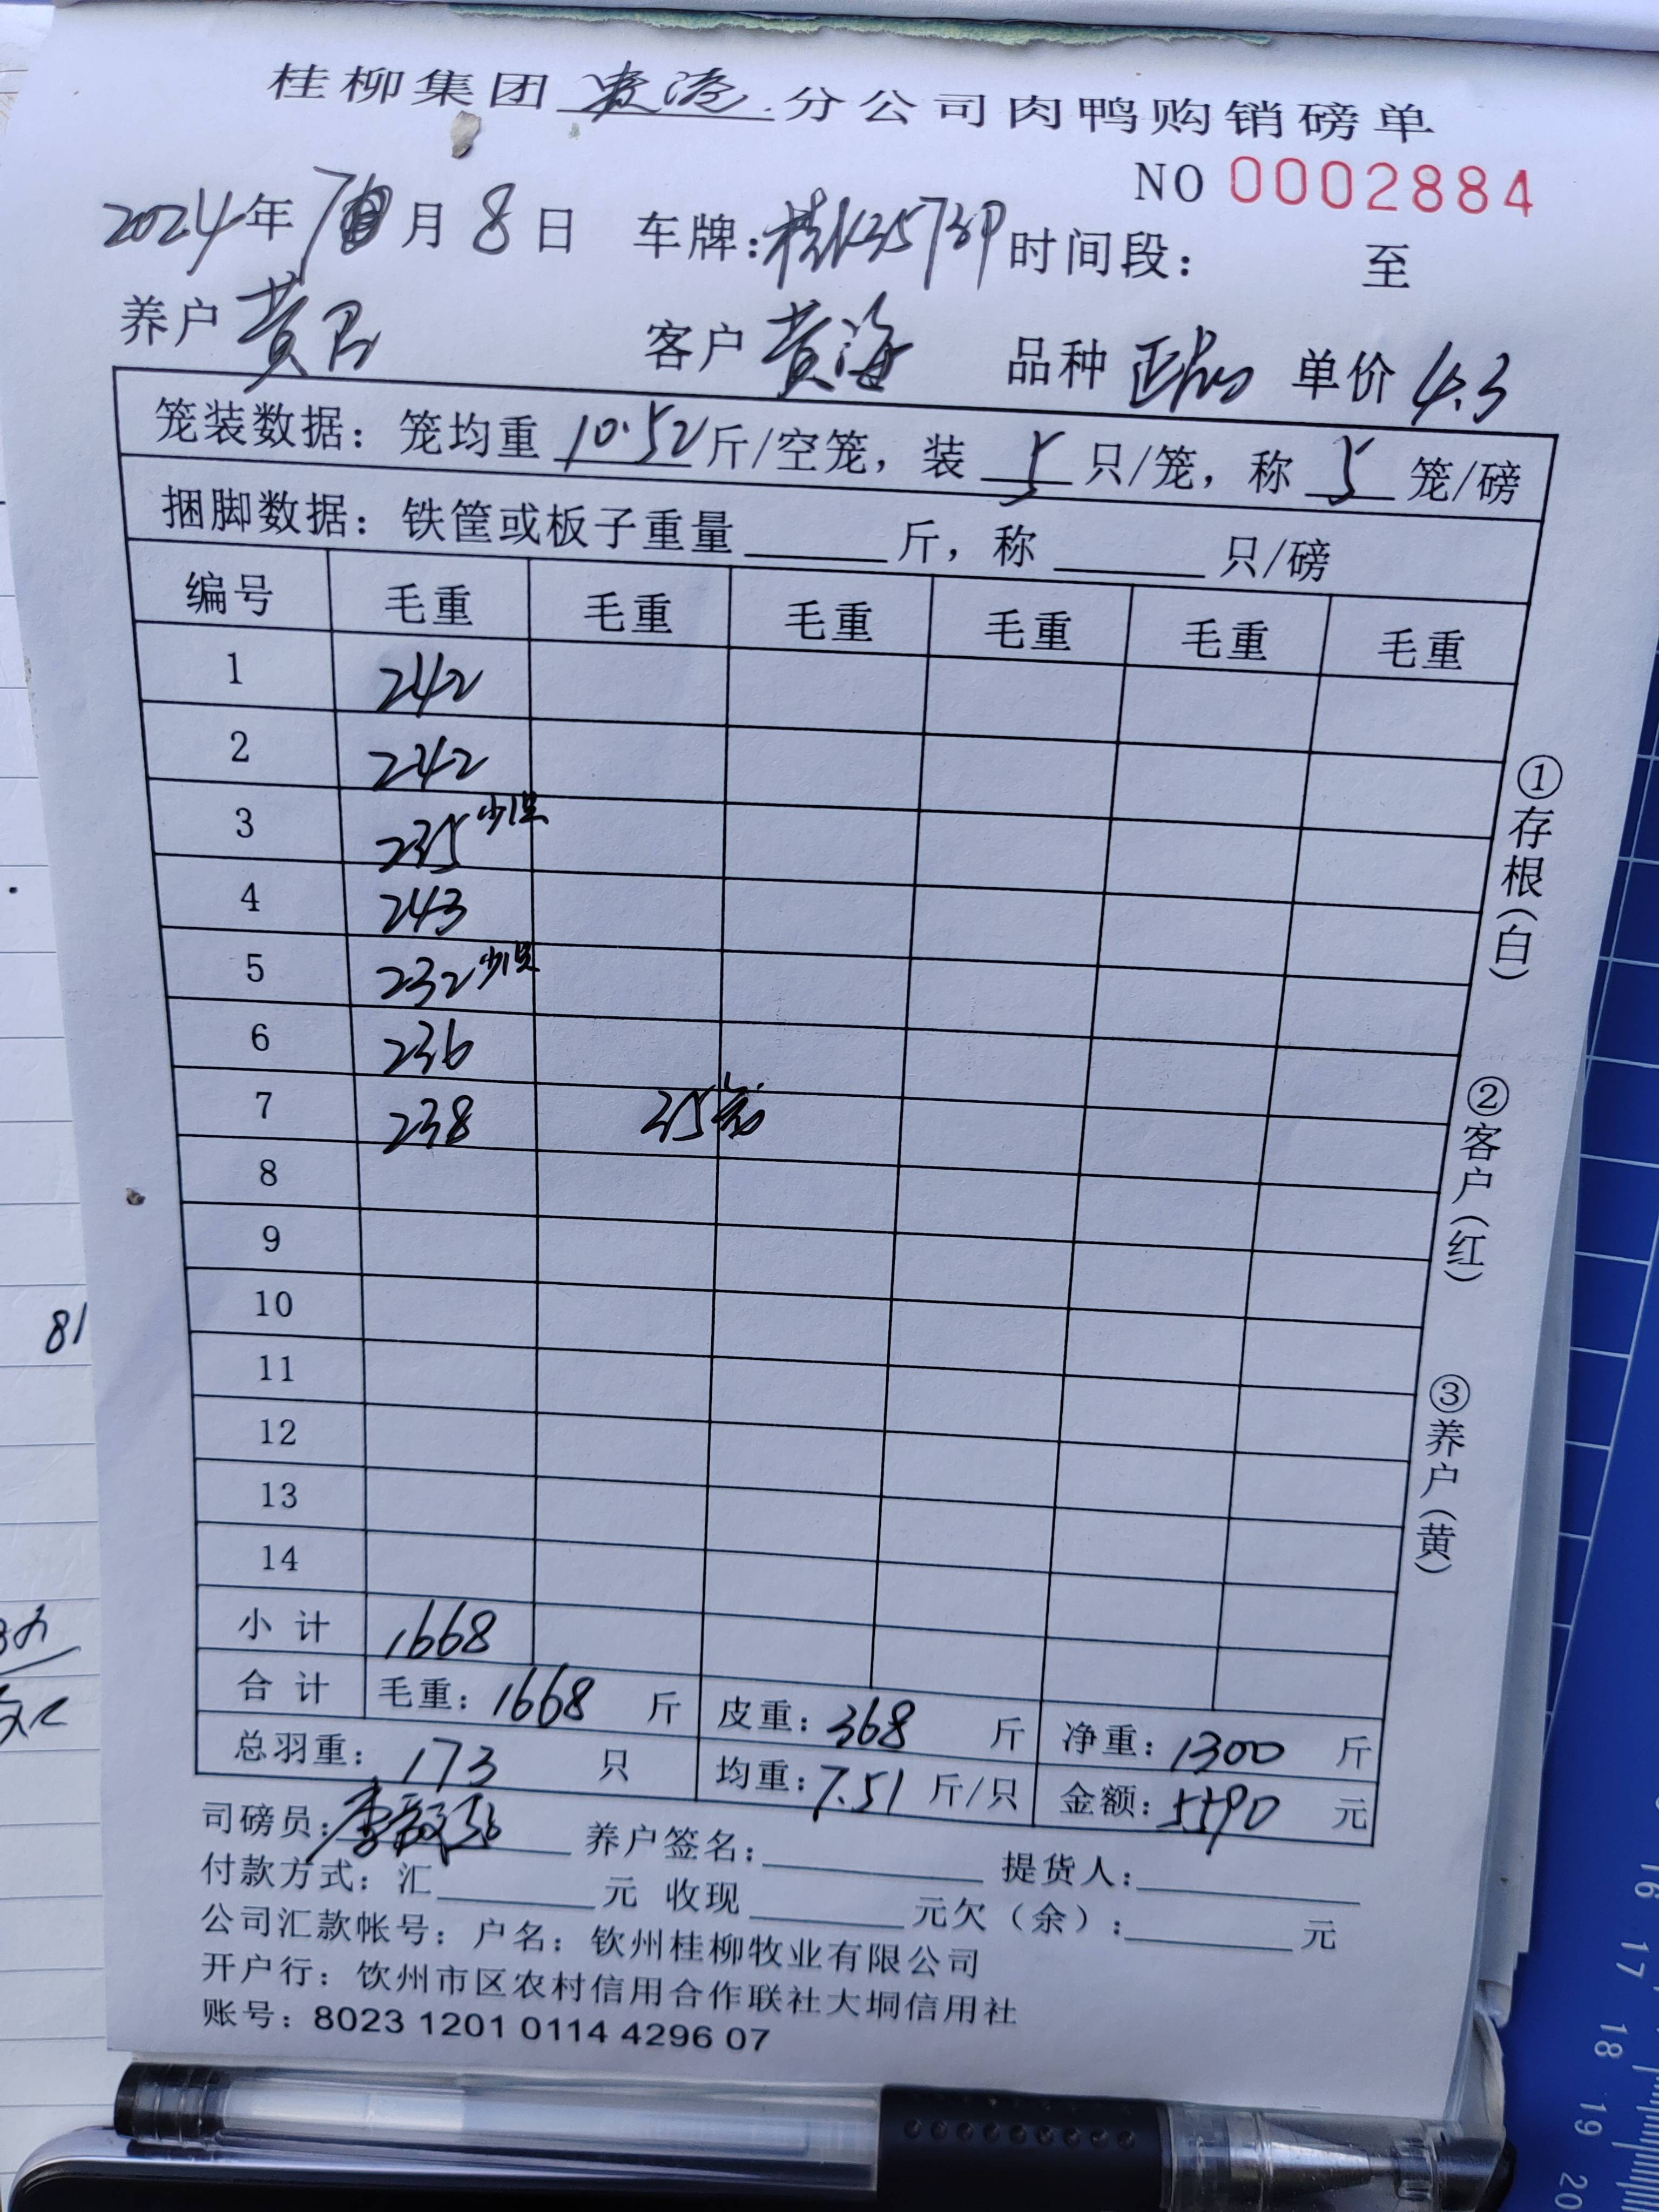 桂柳集团 贵港 分公司肉鸭购销磅单
NO 0002884
2024年 7 月 8 日 车牌: 桂K3573P 时间段: 至
养户 黄 客户 黄海 品种 单价 4.3
笼装数据: 笼均重 10.52 斤/空笼, 装 5 只/笼, 称 5 笼/磅
捆脚数据: 铁筐或板子重量 斤, 称 只/磅
编号 毛重 毛重 毛重 毛重 毛重 毛重
1 242
2 242
3 235 少1只
4 243
5 232 少1只
6 236
7 238 35笼
8
9
10
11
12
13
14
小 计 1668
合 计 毛重: 1668 斤 皮重: 368 斤 净重: 1300 斤
总羽重: 173 只 均重: 7.51 斤/只 金额: 5590 元
司磅员: 李 养户签名: 提货人:
付款方式: 汇 元 收现 元欠(余): 元
公司汇款帐号: 户名: 钦州桂柳牧业有限公司
开户行: 饮州市区农村信用合作联社大垌信用社
账号: 8023 1201 0114 4296 07
①存根(白)
②客户(红)
③养户(黄)
81
16
17
18
19
20